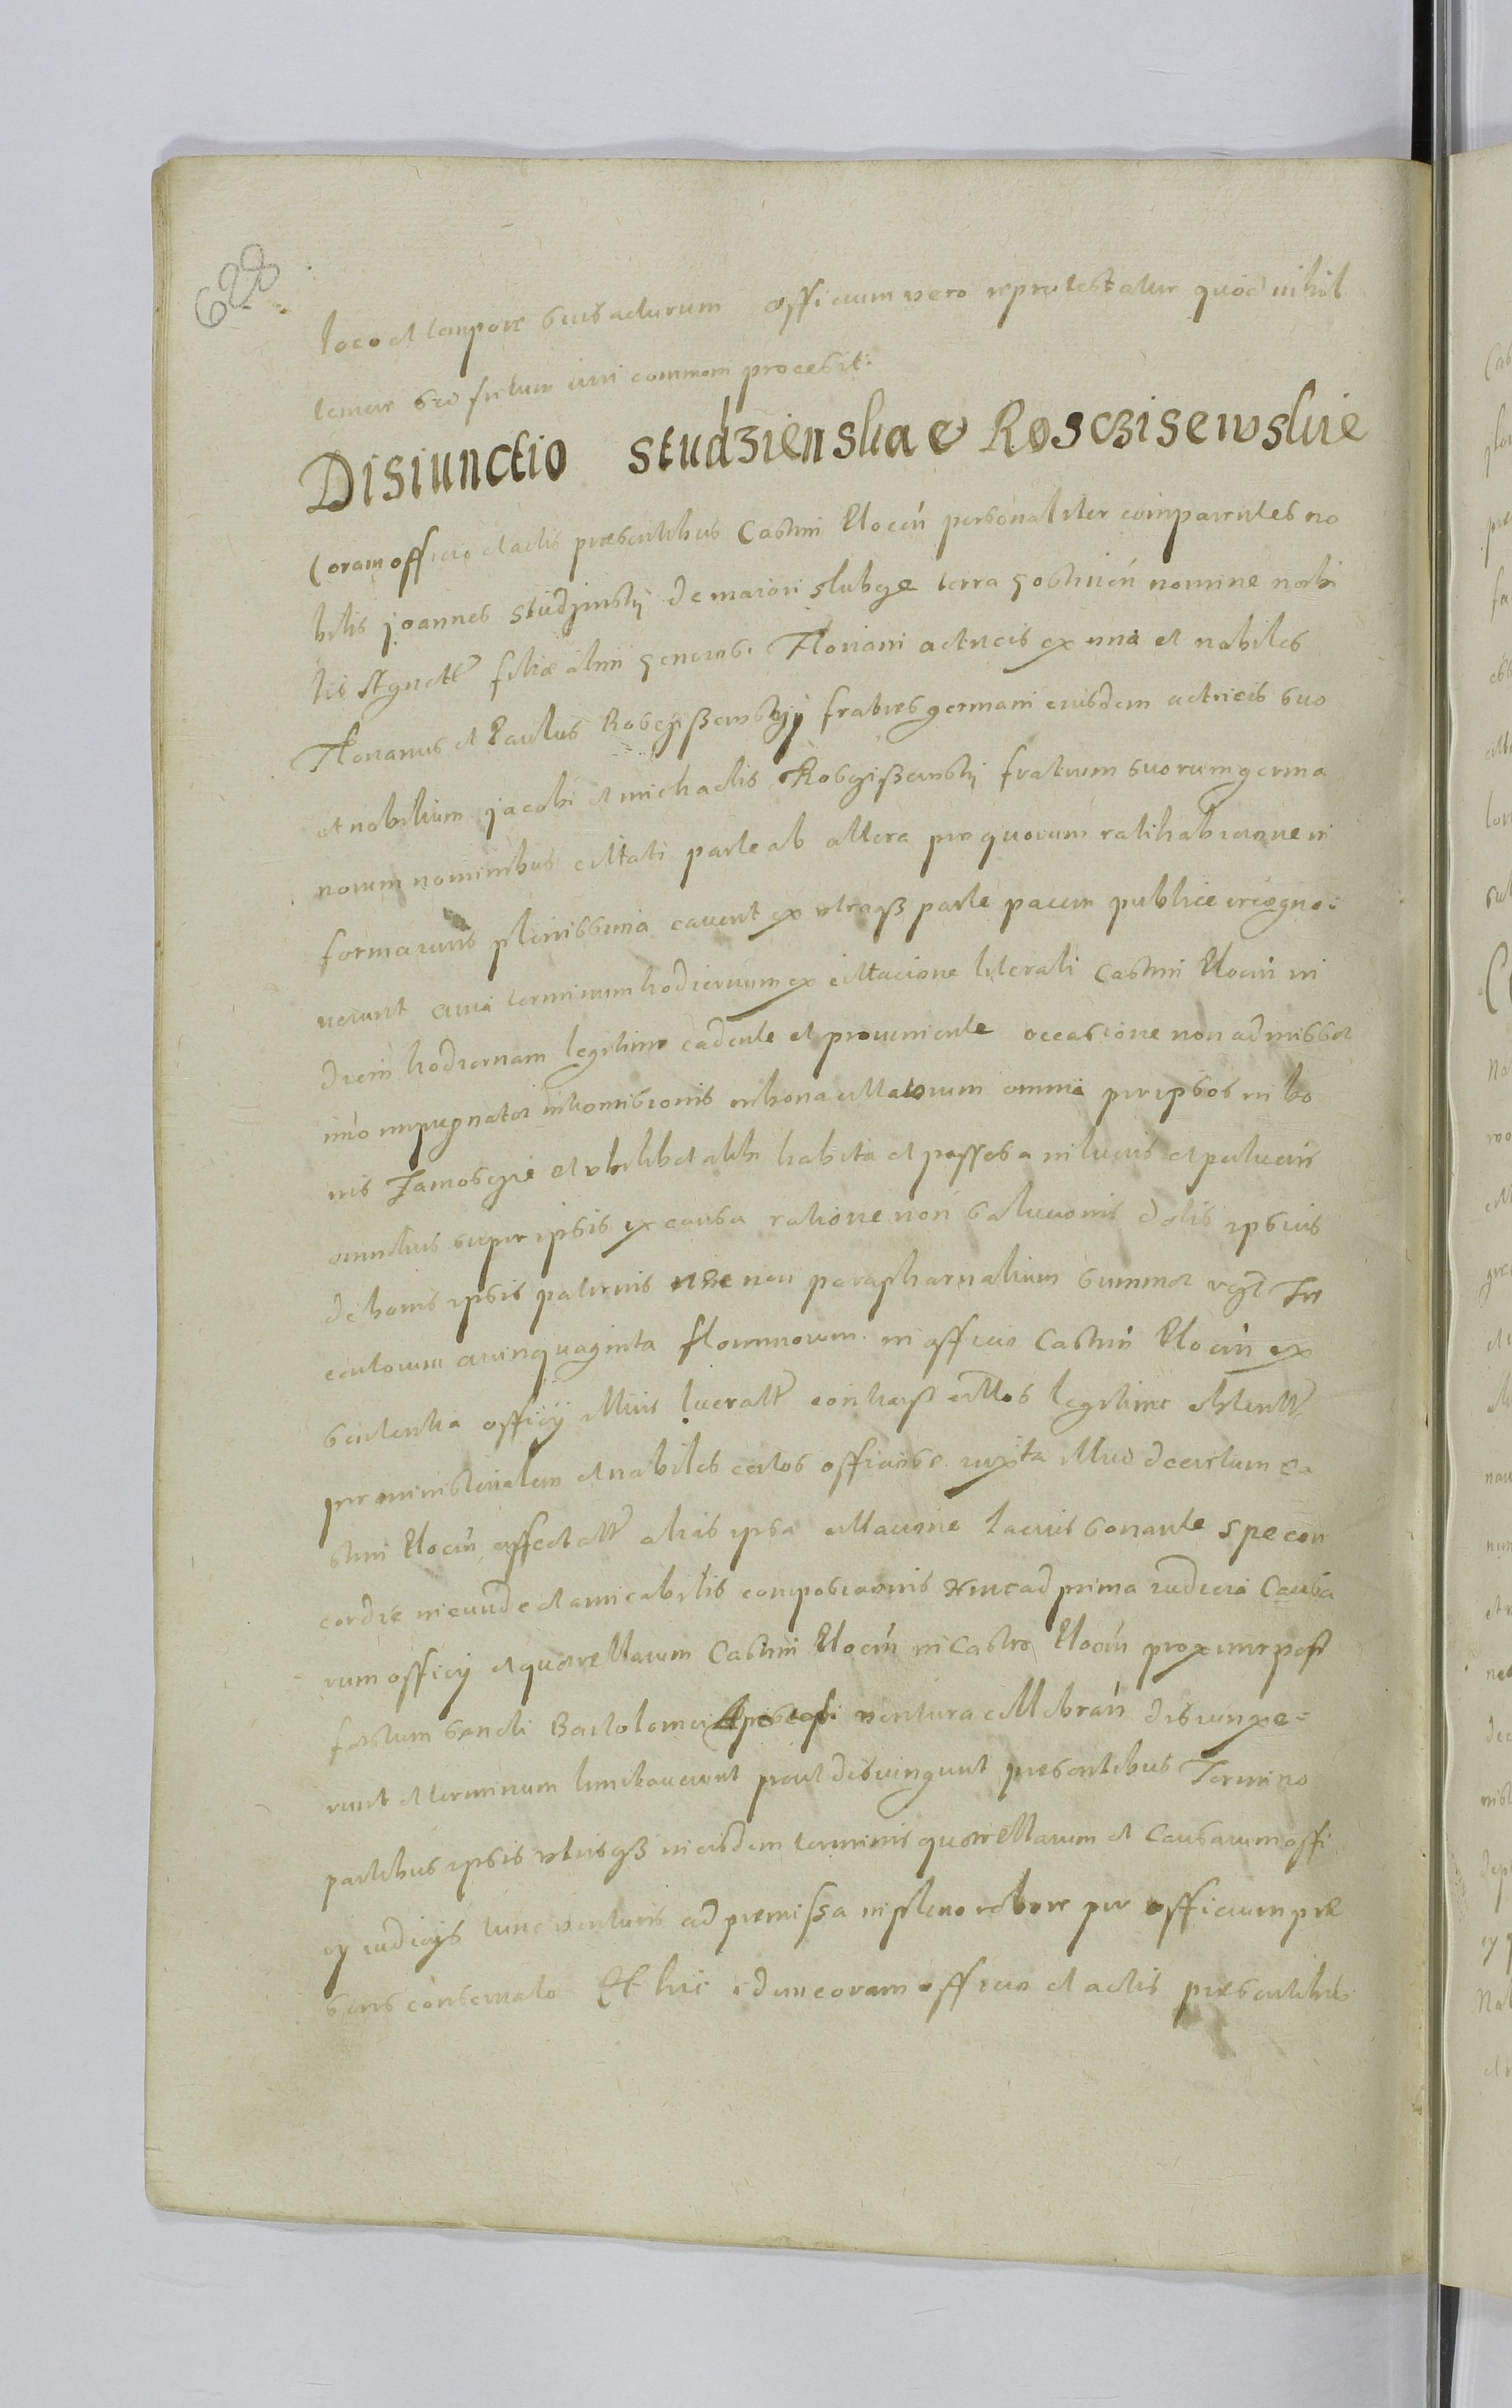 628
loco et tempore suis acturum officium vero reprotestatur quod nihil
temere sed fretum iuri commem procesit:
Disiunctio studzienska et Rosczisewskie
Coram officio et actis præsentibus Castrn Plocen personaliter comparentes no
bilis joannes studzinskij de maiori slubge terra gostinen nomine nobi
lis Agnett filiæ olim generosi Floriani actricis ex una et nobiles
Florianus et Paulus Rosczißewskyy fratres germani eiusdem actricis suo
et nobilium jacobi et michaelis Roscißewskij fratrum suorum germa
norum nominibus cittati parte ab altera pro quorum ratihabicione in
forma iuris plenissima cavent ex utraqß parte pacem publice recogno:
verunt quia terminum hodiernum ex cittacione literali Castrn Plocen in
diem hodiernam legitime cadente et proveniente occasione non admissæ
imo impugnatæ intromissionis in bona cittatorum omnia per ipsos in bo
nis Zamoscze et ubilibet alibi habita et possessa in lucris et perlucris
omnibus super ipsis ex causa ratione non salucionis dotis ipsius
de bonis ipsis paternis nec non parapharnalium summæ vgt Tre
centorum quinquaginta florenorum in officio Castrn Plocen ex
sententia officij illius lucratt contra eß cittos legitime obtentt
per ministerialem et nobiles certos officiose iuxta illud decretum Ca
strn Plocen affectatt alias ipsa cittacione lacius sonante spe con
cordie ineunde et amicabilis composicionis hinc ad prima iudicia Causa
rum officij et querellarum Castrn Plocen in Castro Plocen proxime post
festum sancti Bartolomei Apostoli ventura cellebran disiunxe=
runt et terminum limitaverunt prout disiungunt presentibus Termino
partibus ipsis utrisqß in eisdem terminis querellarum et Causarum offi
cij iudicijs tunc venturis ad premißa in pleno robore per officium præ
sens conservato Et hic idem coram officio et actis presentibus